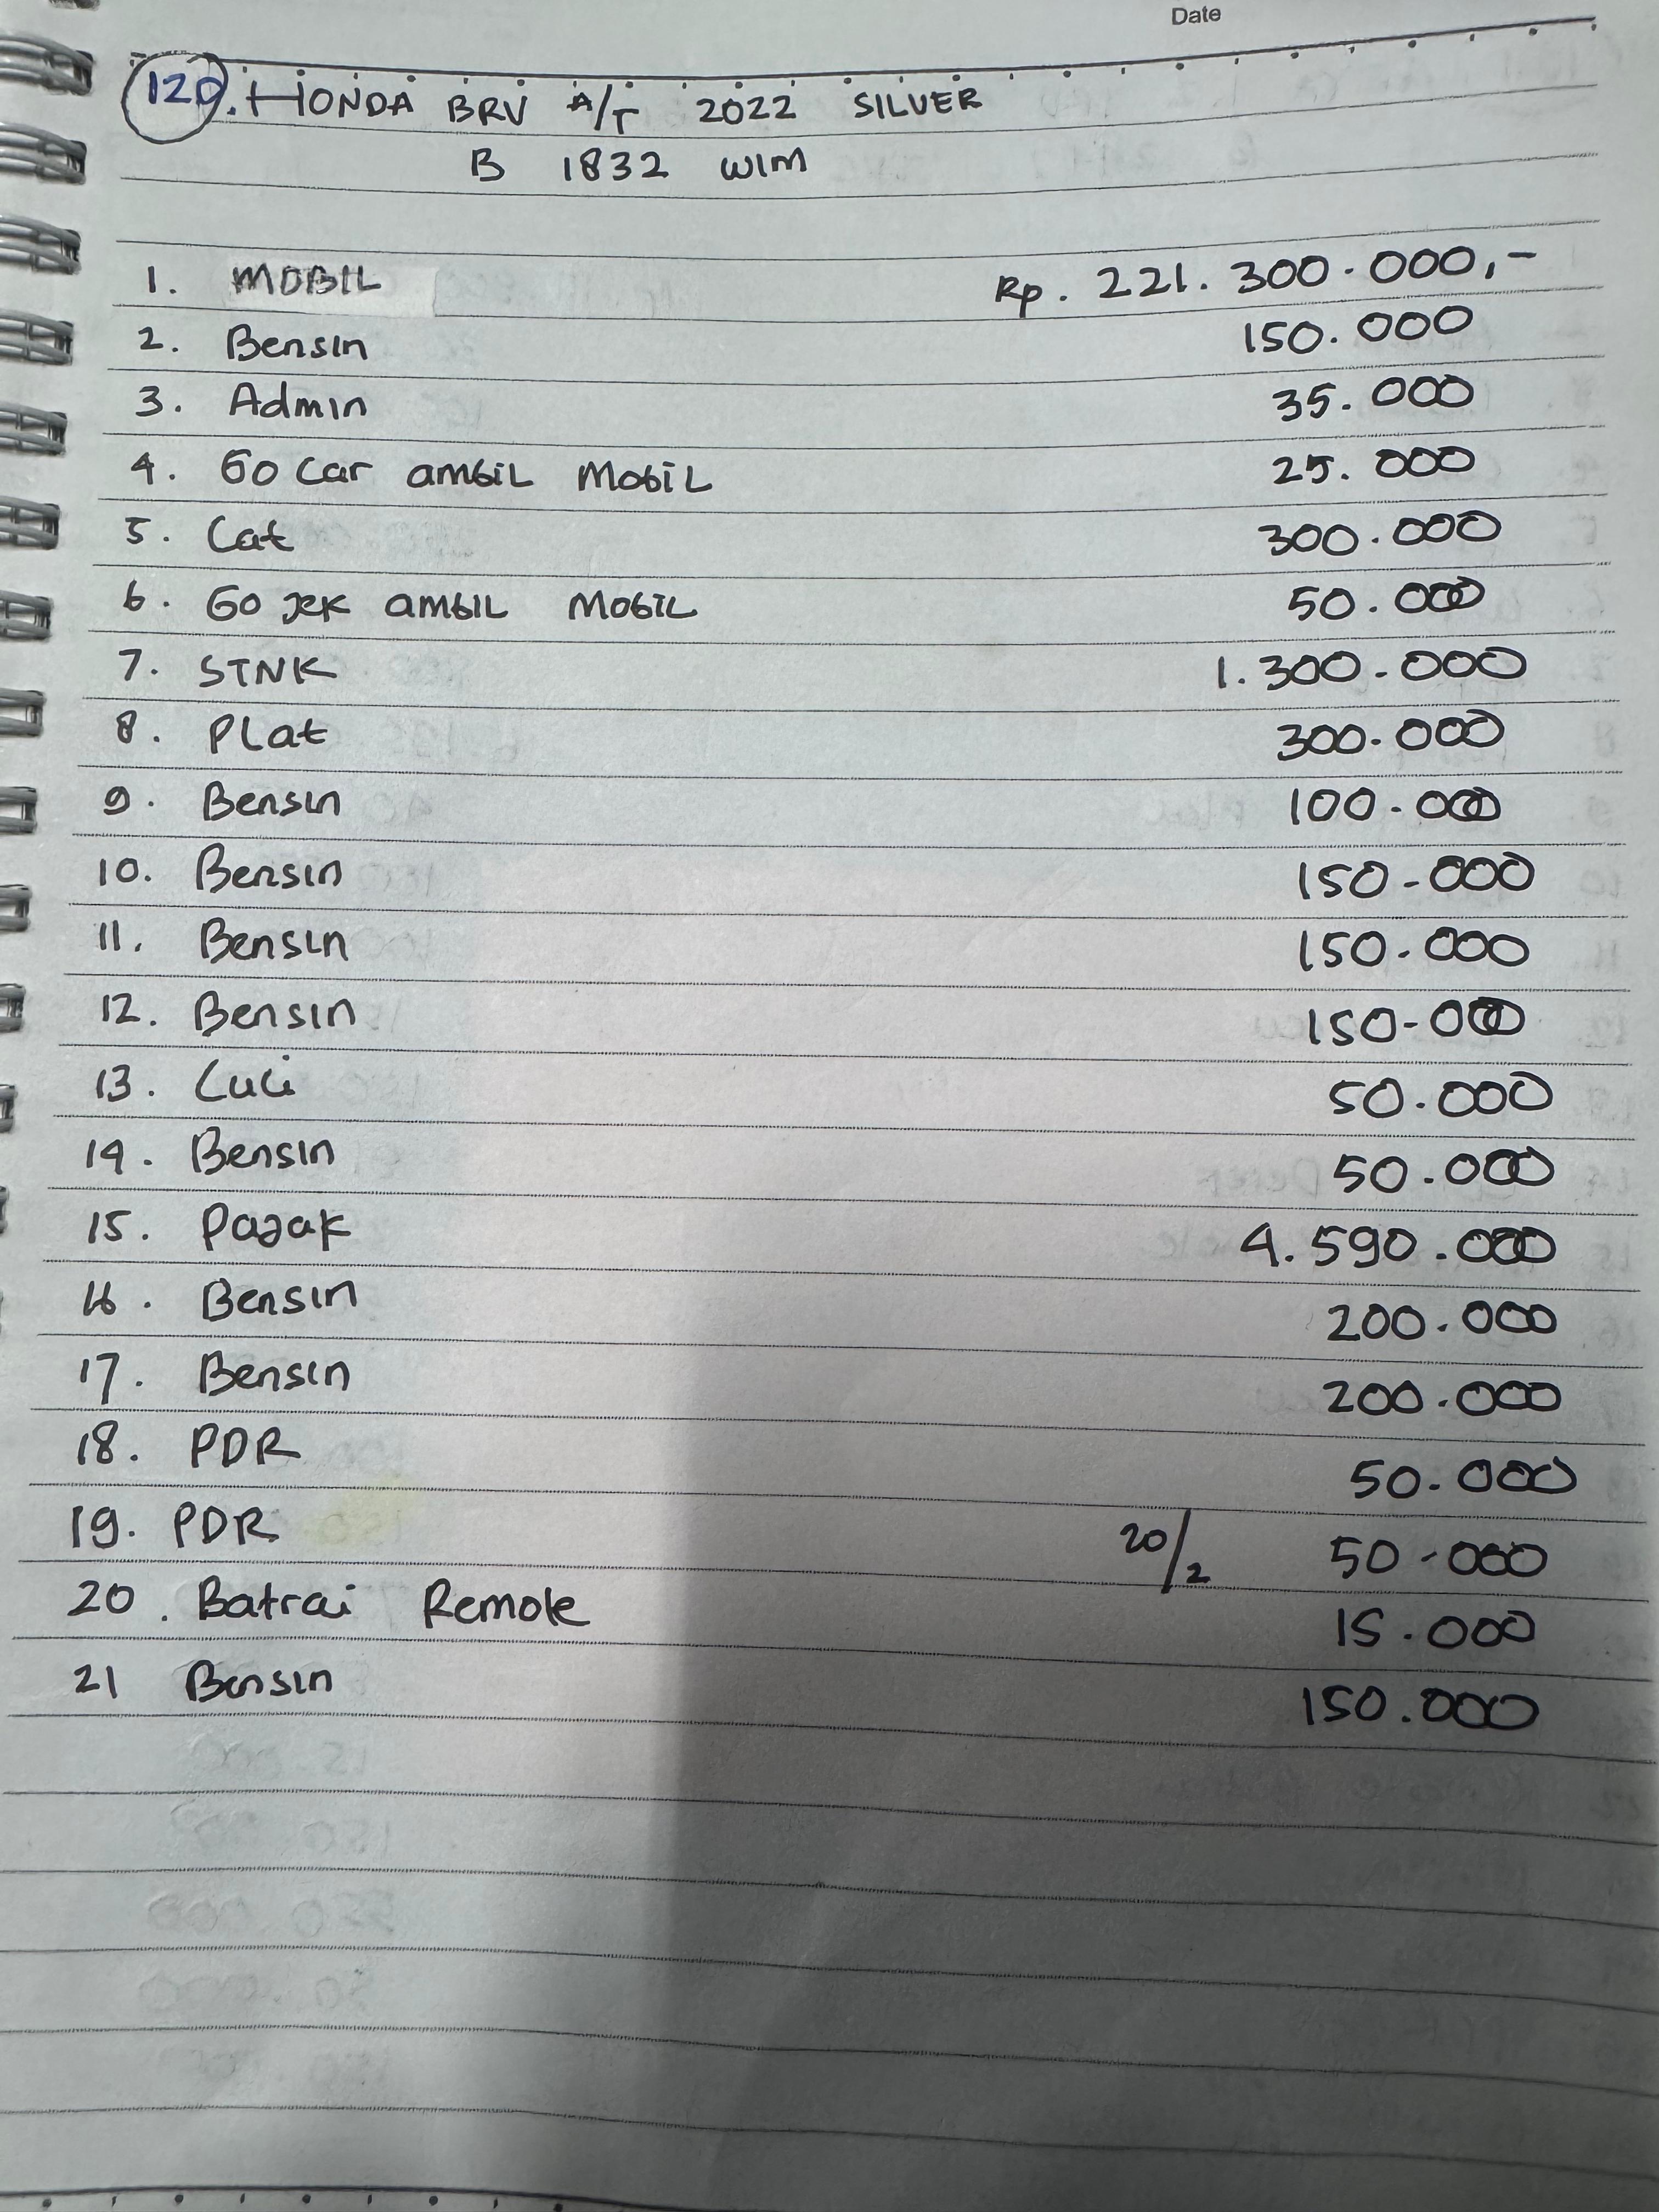 Date
120. HONDA BRV A/T 2022 SILVER
B 1832 WIM
1. MOBIL Rp. 221.300.000,-
2. Bensin 150.000
3. Admin 35.000
4. Go Car ambil Mobil 25.000
5. Cat 300.000
6. Go jek ambil Mobil 50.000
7. STNK 1.300.000
8. Plat 300.000
9. Bensin 100.000
10. Bensin 150.000
11. Bensin 150.000
12. Bensin 150.000
13. Cuci 50.000
14. Bensin 50.000
15. Pajak 4.590.000
16. Bensin 200.000
17. Bensin 200.000
18. PDR 50.000
19. PDR 20/2 50.000
20. Batrai Remote 15.000
21 Bensin 150.000